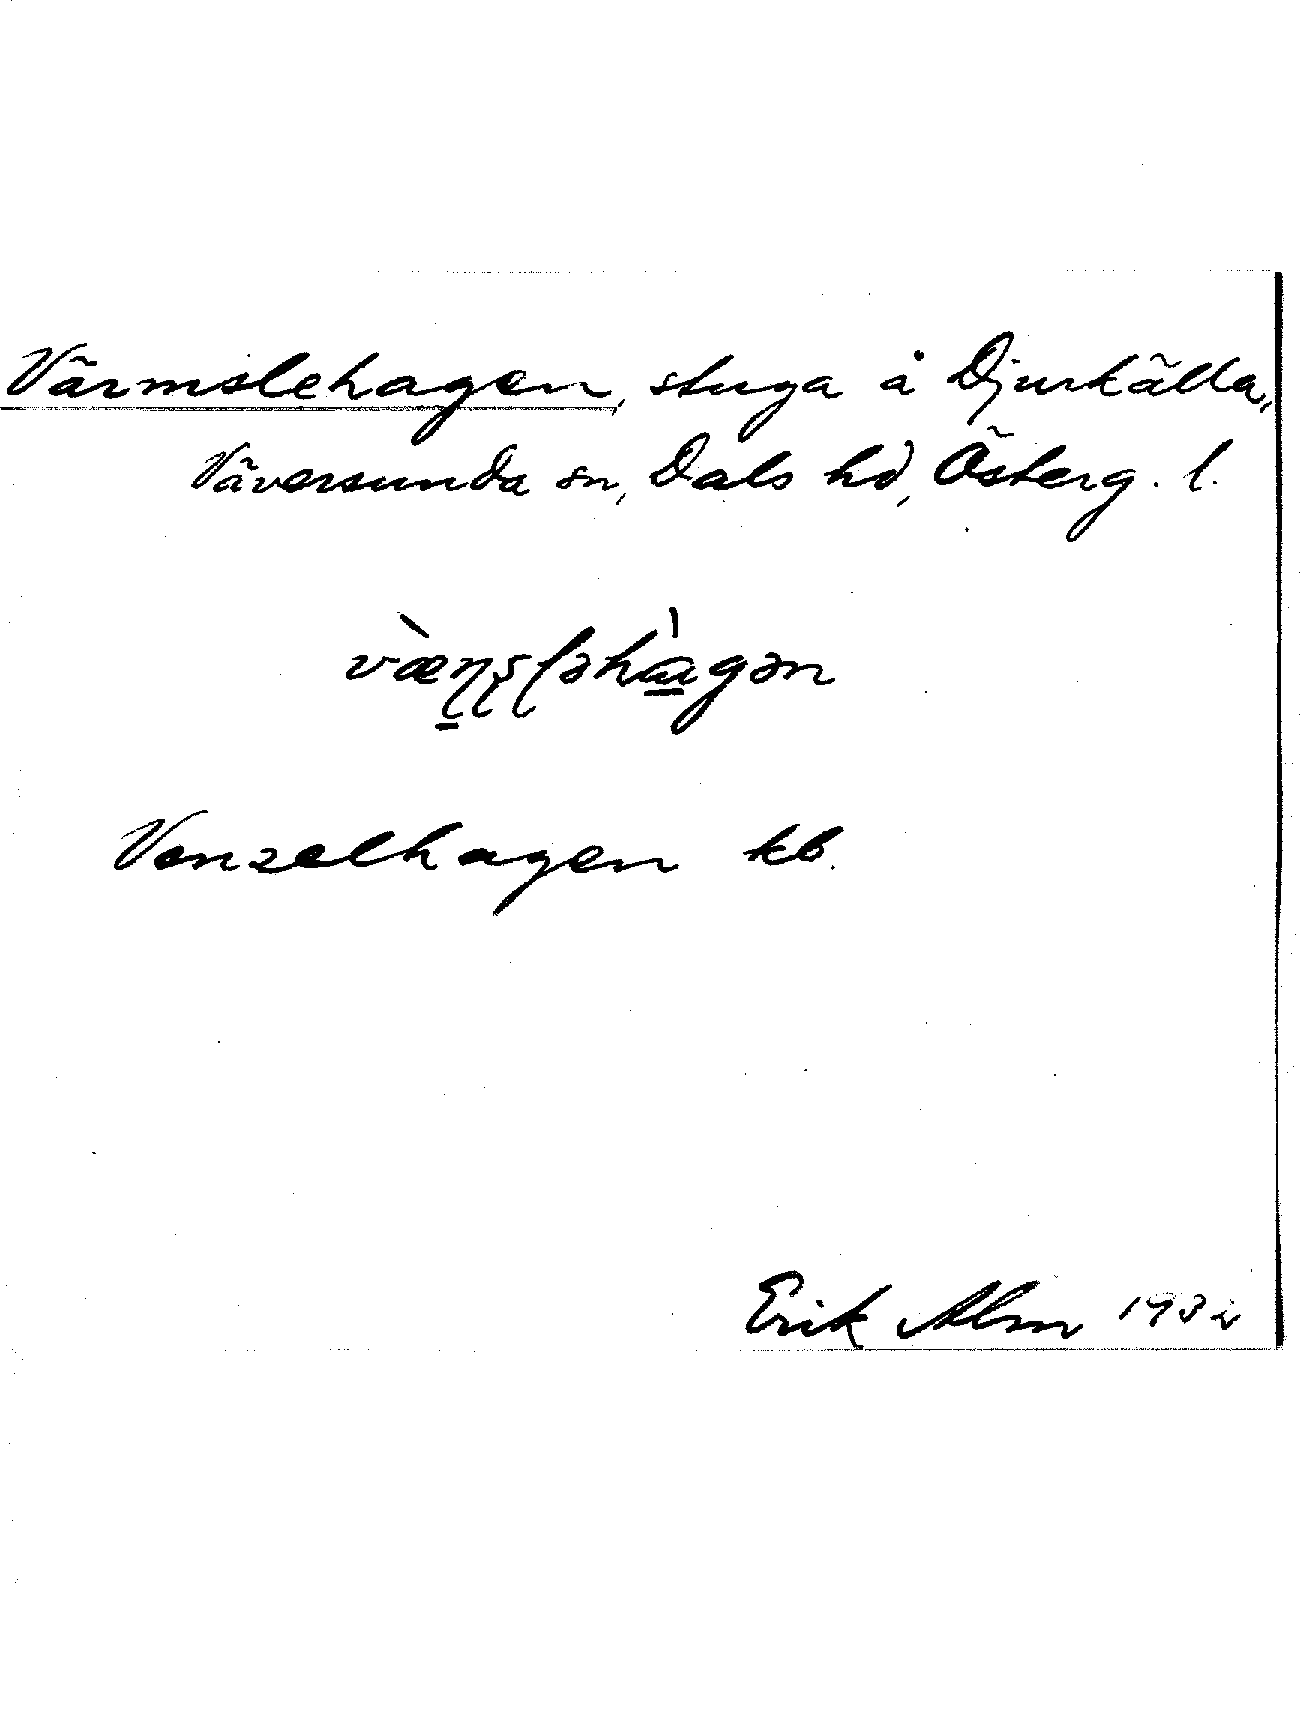 Värmslehagen, stuga å Djurkälla,
Väversunda sn, Dals hd, Österg. l.
Venzelhagen kb.
Erik Alm 1932